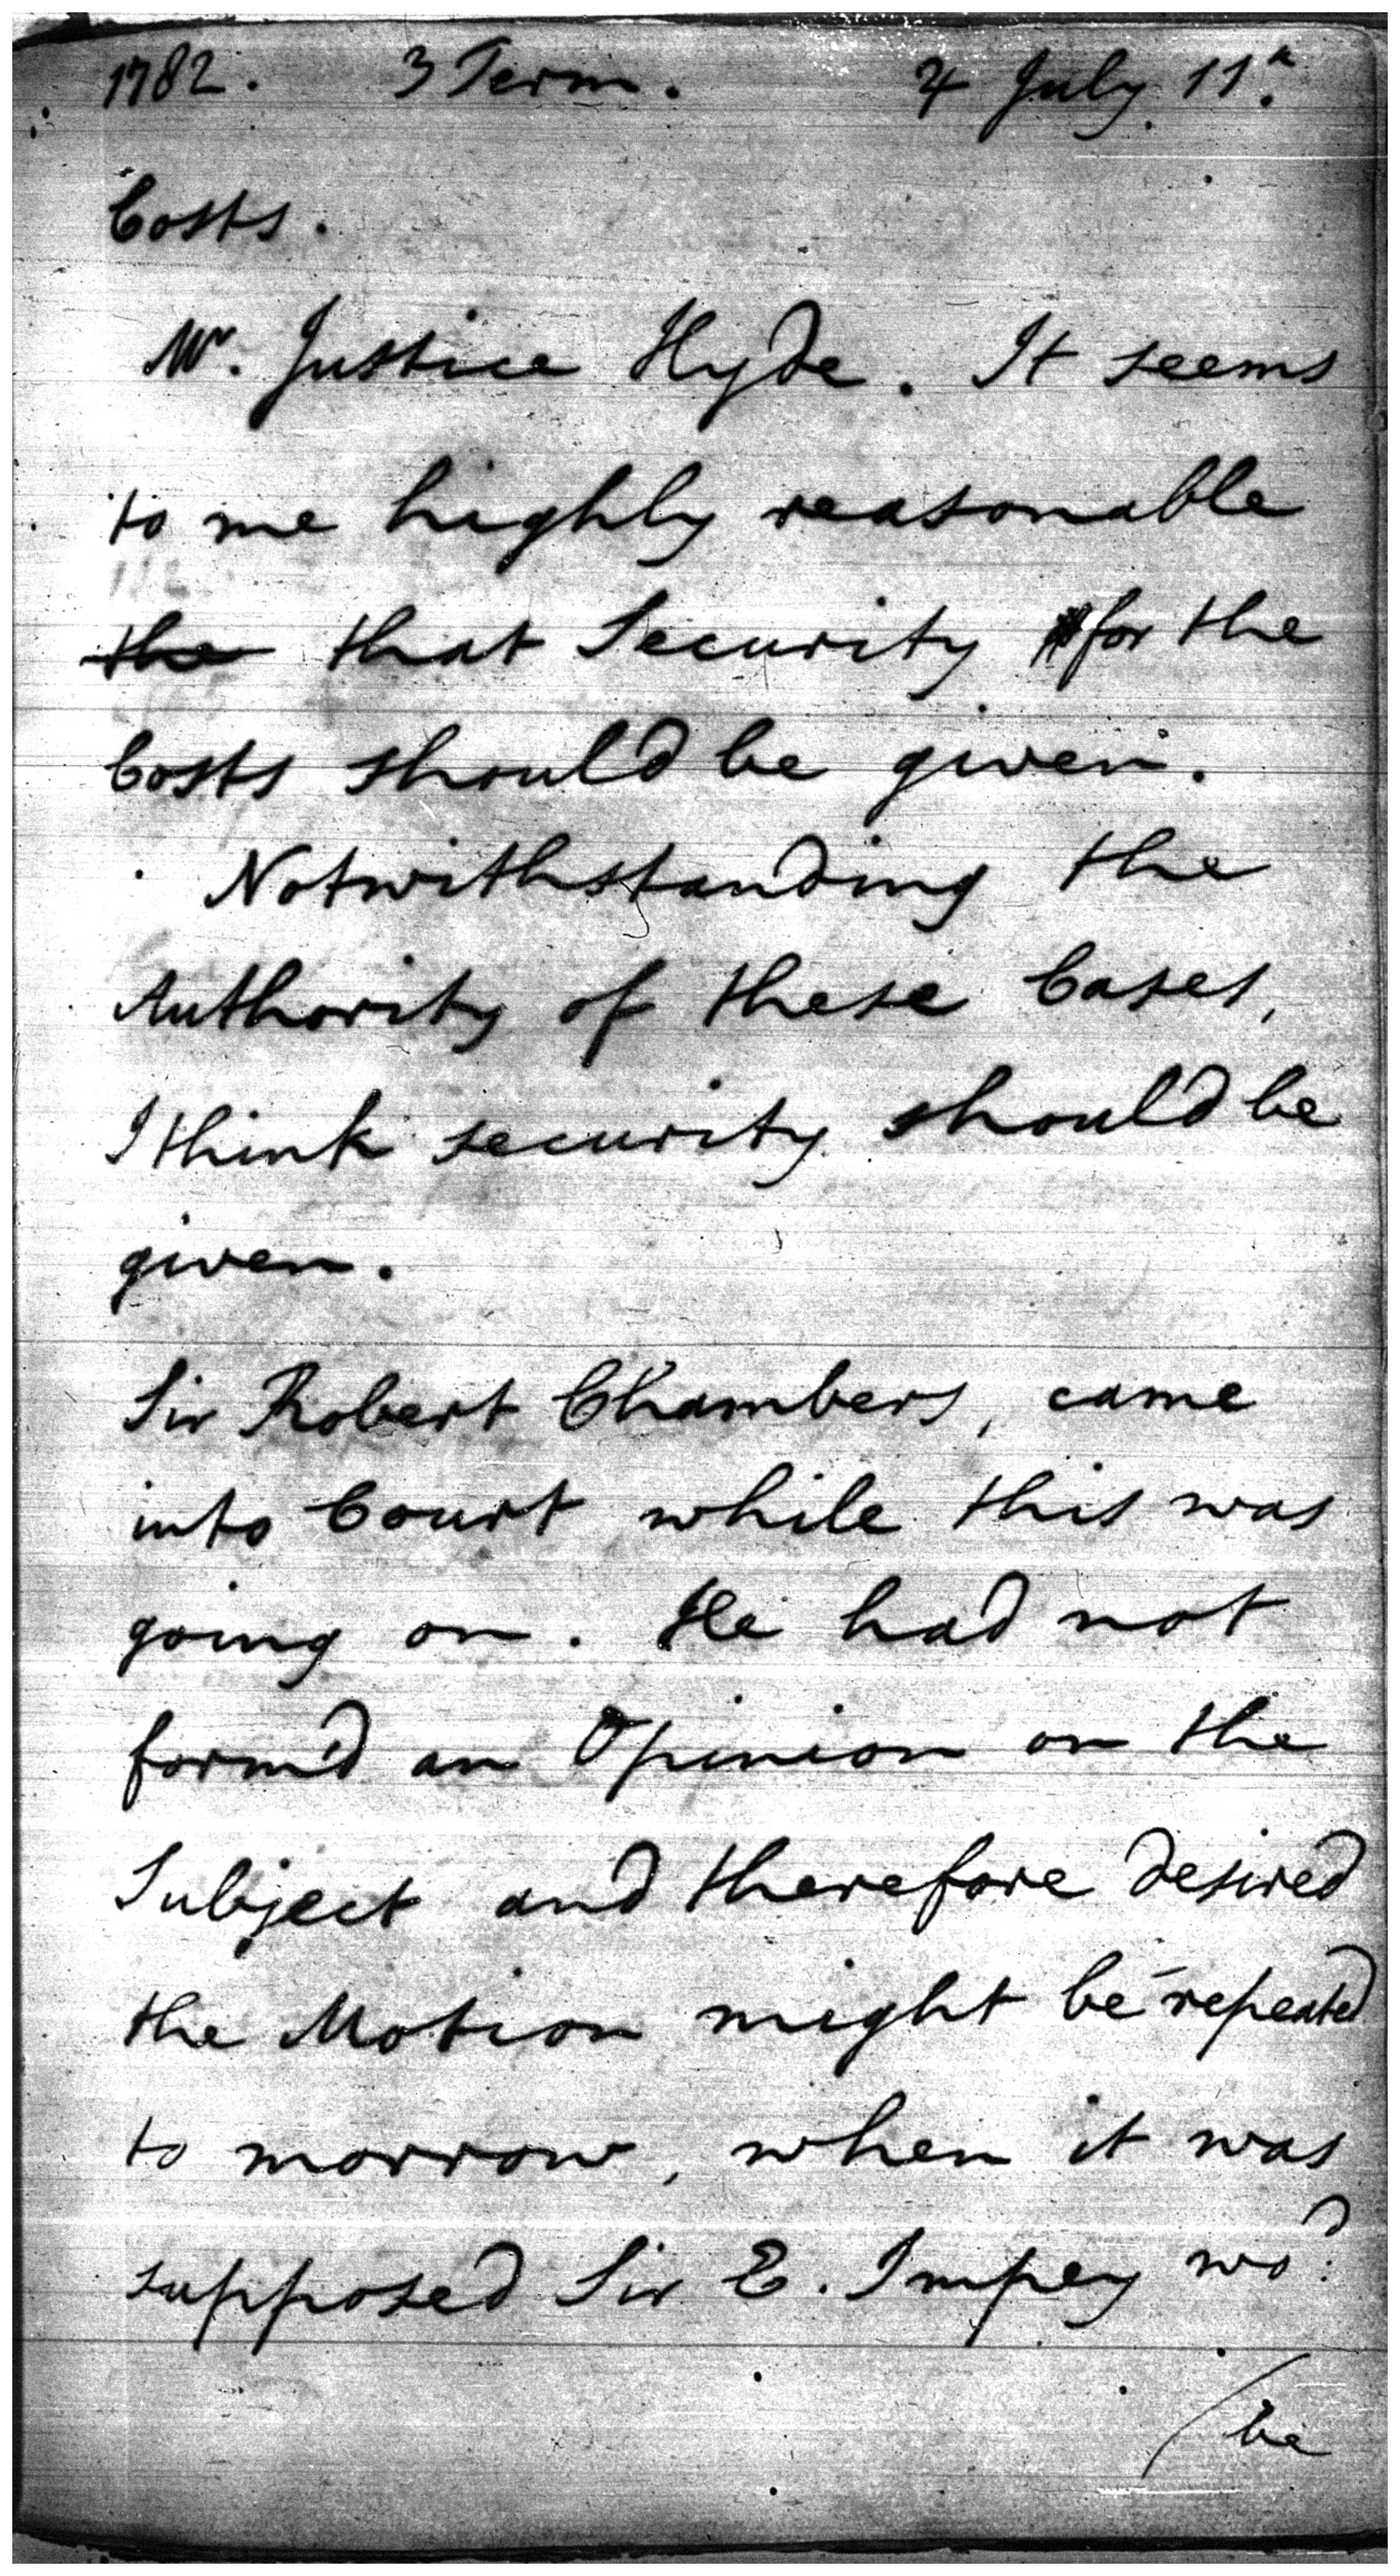 1782. 3 Term. ♃ July 11.th
Costs.
Mr. Justice Hyde. It seems
to me highly reasonable
the that Security for the
Costs should be given.
Notwithstanding the
Authority of these Cases,
I think security should be
given.
Sir Robert Chambers, came
into Court while this was
going on. He had not
form'd an Opinion on the
Subject and therefore desired
the Motion might be repeated
to morrow, when it was
supposed Sir E. Impey wo.d
/be